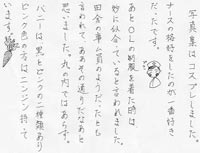 写真集はコスプレしました。
ナースの格好をしたのが一番好き
だったです。
あとOLの制服を着た時は
妙に似合っていると言われました。
田舎の事ム員のようだったとも
言われて、ああその通りだなあと
思いました。丸の内ではあらず。
バニーは黒とピンクの二種類あり
ピンク色の方はニンジン持って
います。